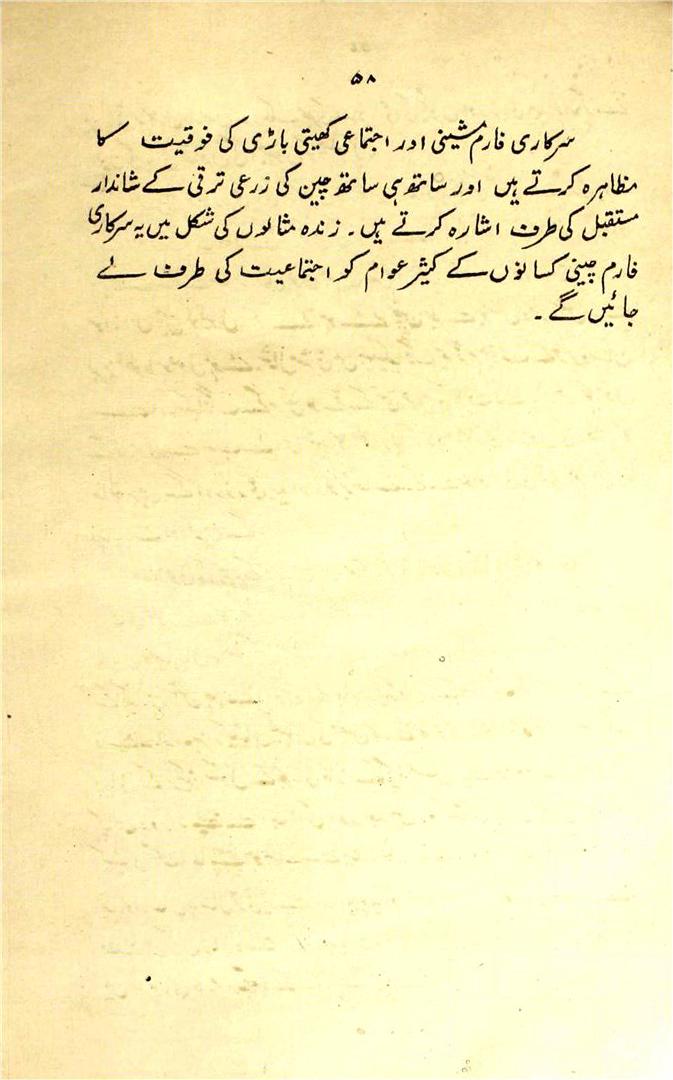 ۵۸
سرکاری فارم مشینی اور اجتماعی کھیتی باڑی کی فوقیت کا
مظاہرہ کرتے ہیں اور ساتھ ہی ساتھ چین کی زرعی ترقی کے شاندار
مستقبل کی طرف اشارہ کرتے ہیں۔ زندہ مثالوں کی شکل میں یہ سرکاری
فارم چینی کسانوں کے کثیر عوام کو اجتماعیت کی طرف لے
جائیں گے۔